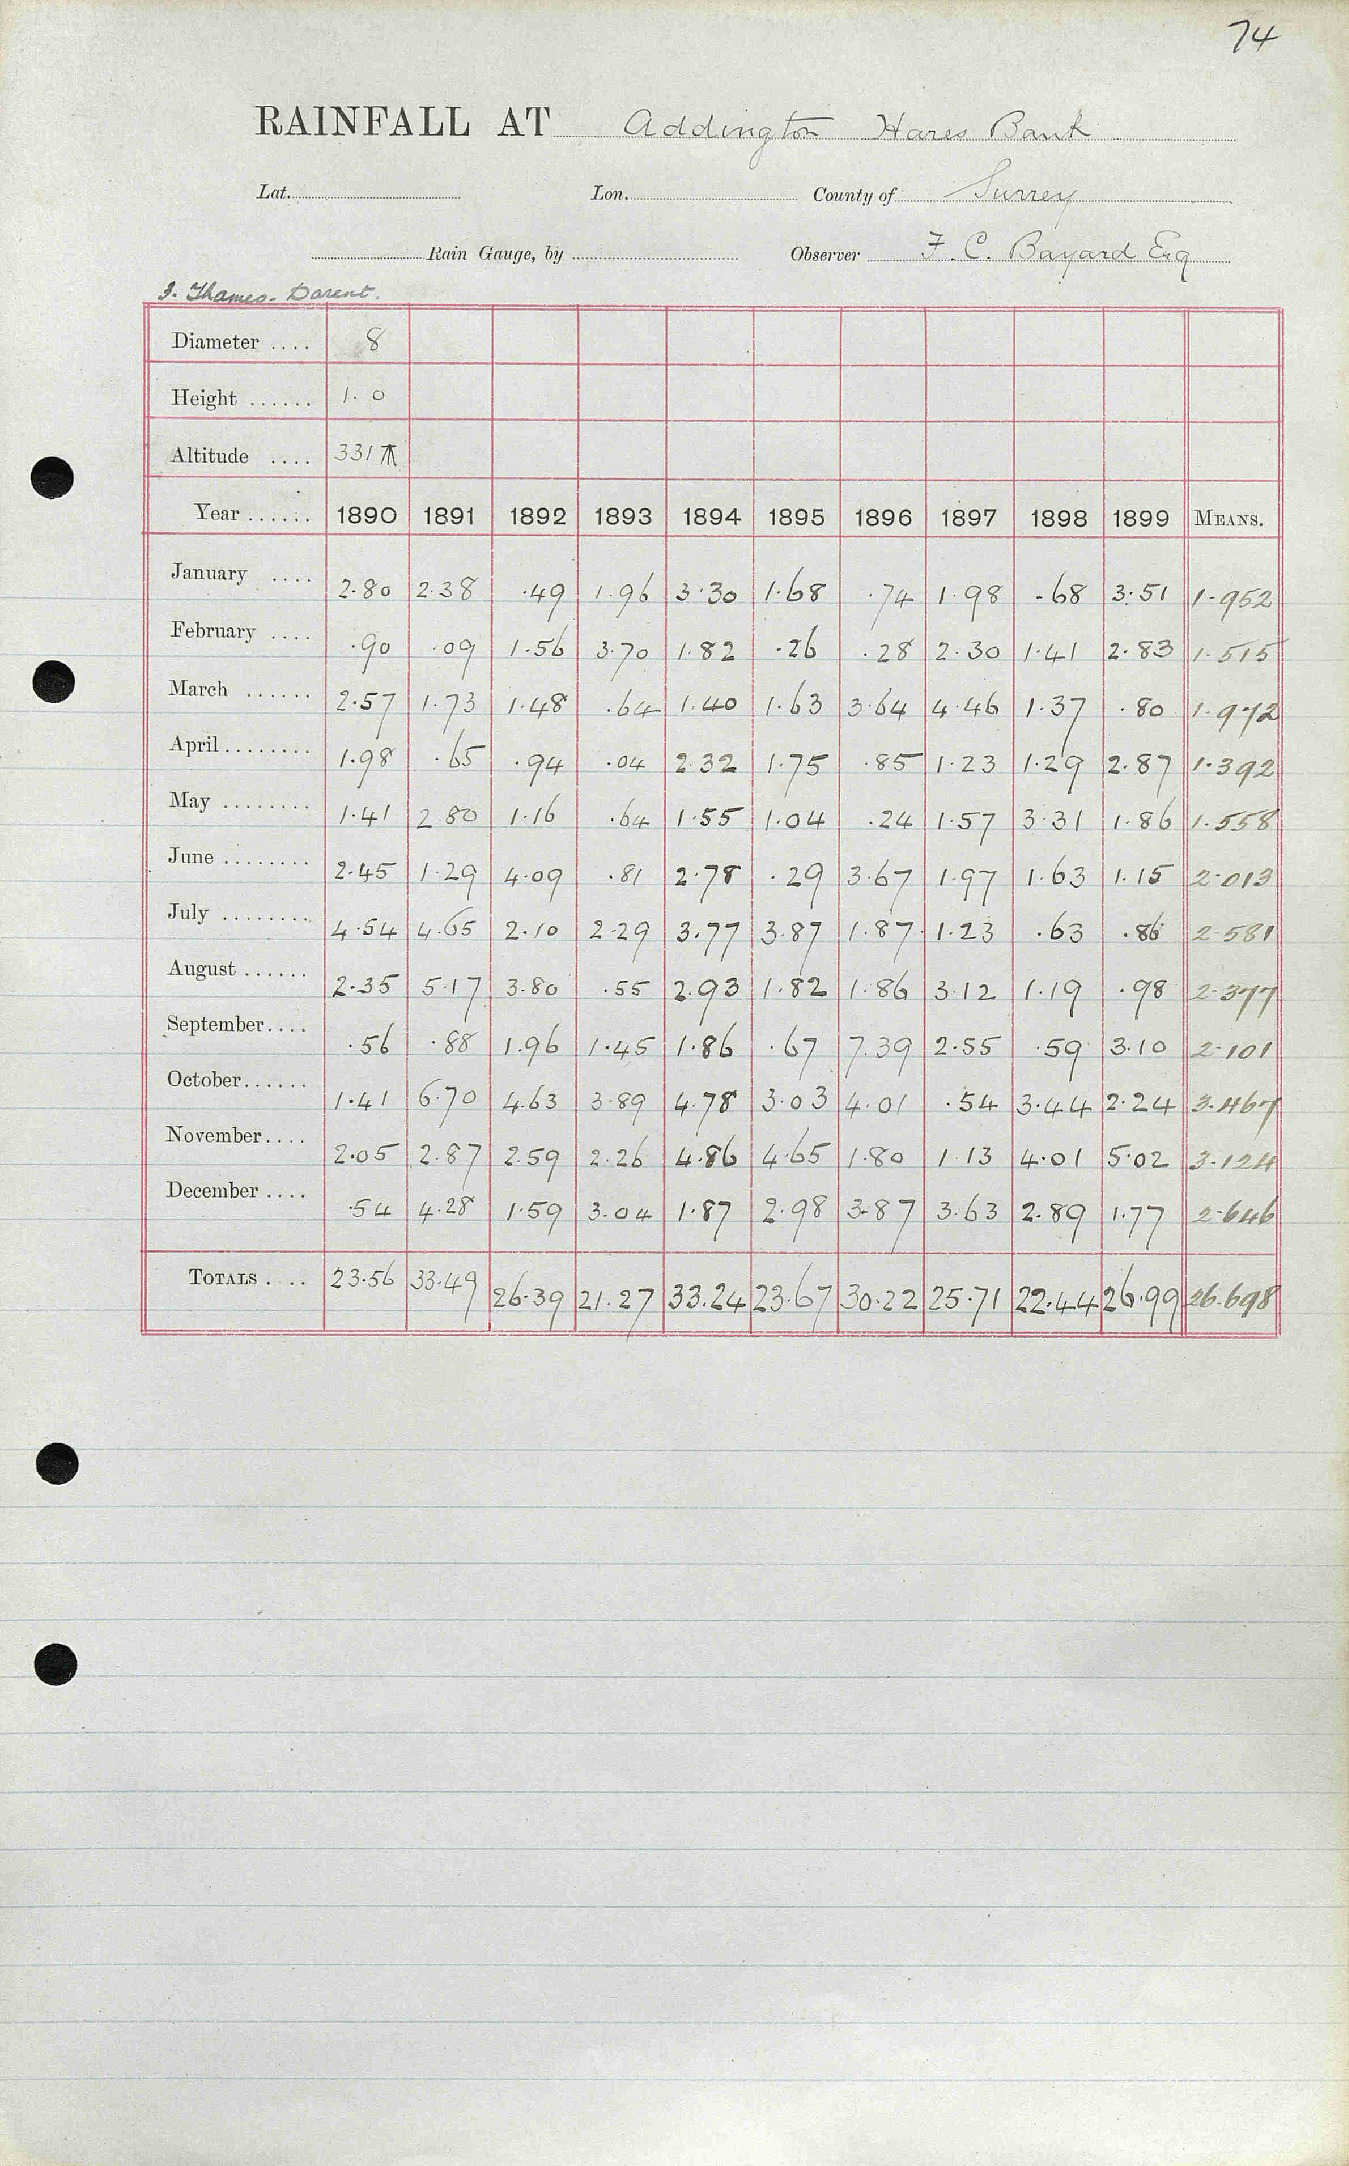 74
RAINFALL AT Addington Hares Bank
Lat. Lon. County of Surrey
Rain Gauge, by Observer F. C. Bayard Esq
3. Thames. Darent.
Diameter .... 8
Height ...... 1.0
Altitude .... 331
Year ...... 1890 1891 1892 1893 1894 1895 1896 1897 1898 1899 MEANS.
January .... 2.80 2.38 .49 1.96 3.30 1.68 .74 1.98 .68 3.51 1.952
February .... .90 .09 1.56 3.70 1.82 .26 .28 2.30 1.41 2.83 1.515
March ...... 2.57 1.73 1.48 .64 1.40 1.63 3.64 4.46 1.37 .80 1.972
April ........ 1.98 .65 .94 .04 2.32 1.75 .85 1.23 1.29 2.87 1.392
May ........ 1.41 2.80 1.16 .64 1.55 1.04 .24 1.57 3.31 1.86 1.558
June ........ 2.45 1.29 4.09 .81 2.78 .29 3.67 1.97 1.63 1.15 2.013
July ........ 4.54 4.65 2.10 2.29 3.77 3.87 1.87 1.23 .63 .86 2.581
August ...... 2.35 5.17 3.80 .55 2.93 1.82 1.86 3.12 1.19 .98 2.377
September.... .56 .88 1.96 1.45 1.86 .67 7.39 2.55 .59 3.10 2.101
October...... 1.41 6.70 4.63 3.89 4.78 3.03 4.01 .54 3.44 2.24 3.467
November.... 2.05 2.87 2.59 2.26 4.86 4.65 1.80 1.13 4.01 5.02 3.124
December .... .54 4.28 1.59 3.04 1.87 2.98 3.87 3.63 2.89 1.77 2.646
TOTALS .... 23.56 33.49 26.39 21.27 33.24 23.67 30.22 25.71 22.44 26.99 26.698